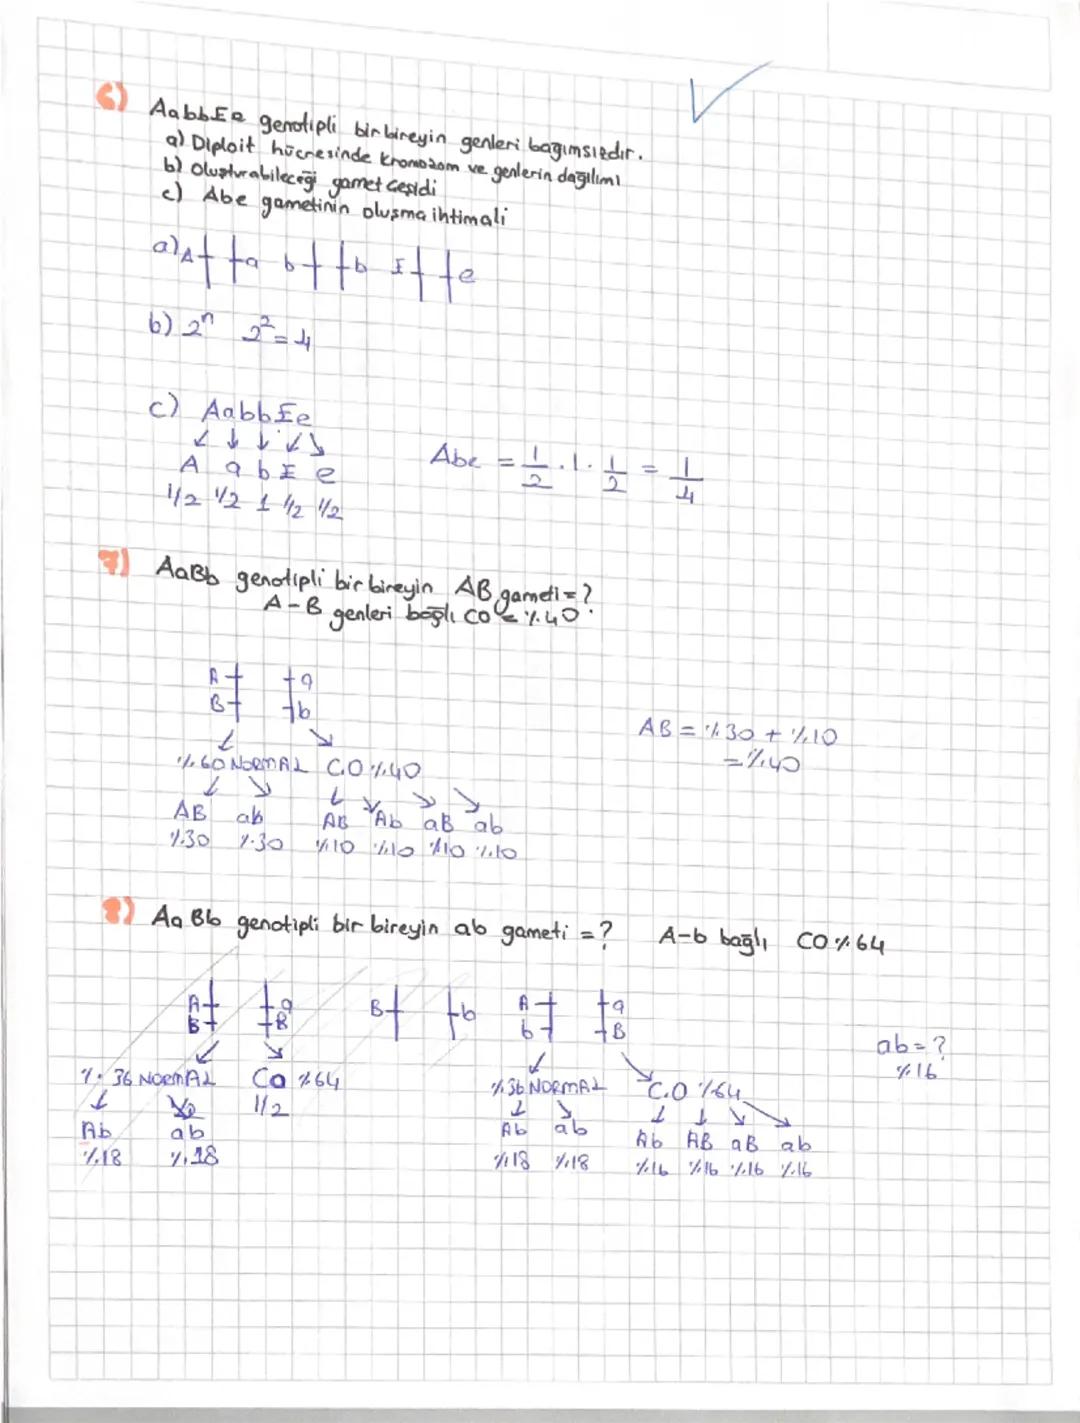 6) AabbEe genotipli bir bireyin genleri bağımsızdır.
a) Diploit hücresinde kromozom ve genlerin dağılımı
b) Oluşturabileceği gamet çeşidi
c) Abe gametinin oluşma ihtimali
a) A a b b E e
b) 2ⁿ 2²=4
c) AabbEe
A a b E e
1/2 1/2 1 1/2 1/2
Abe = 1/2 . 1 . 1/2 = 1/4
7) AaBb genotipli bir bireyin AB gameti = ?
A-B genleri bağlı CO = %40
A a
B b
%60 NORMAL C.O %40
AB ab AB Ab aB ab
%30 %30 %10 %10 %10 %10
AB = %30 + %10
= %40
8) AaBb genotipli bir bireyin ab gameti = ? A-b bağlı CO %64
A a B b A a
B B b B
%36 NORMAL CO %64 %36 NORMAL C.O %64
1/2
Ab ab Ab ab Ab AB aB ab
%18 %18 %18 %18 %16 %16 %16 %16
ab = ?
%16